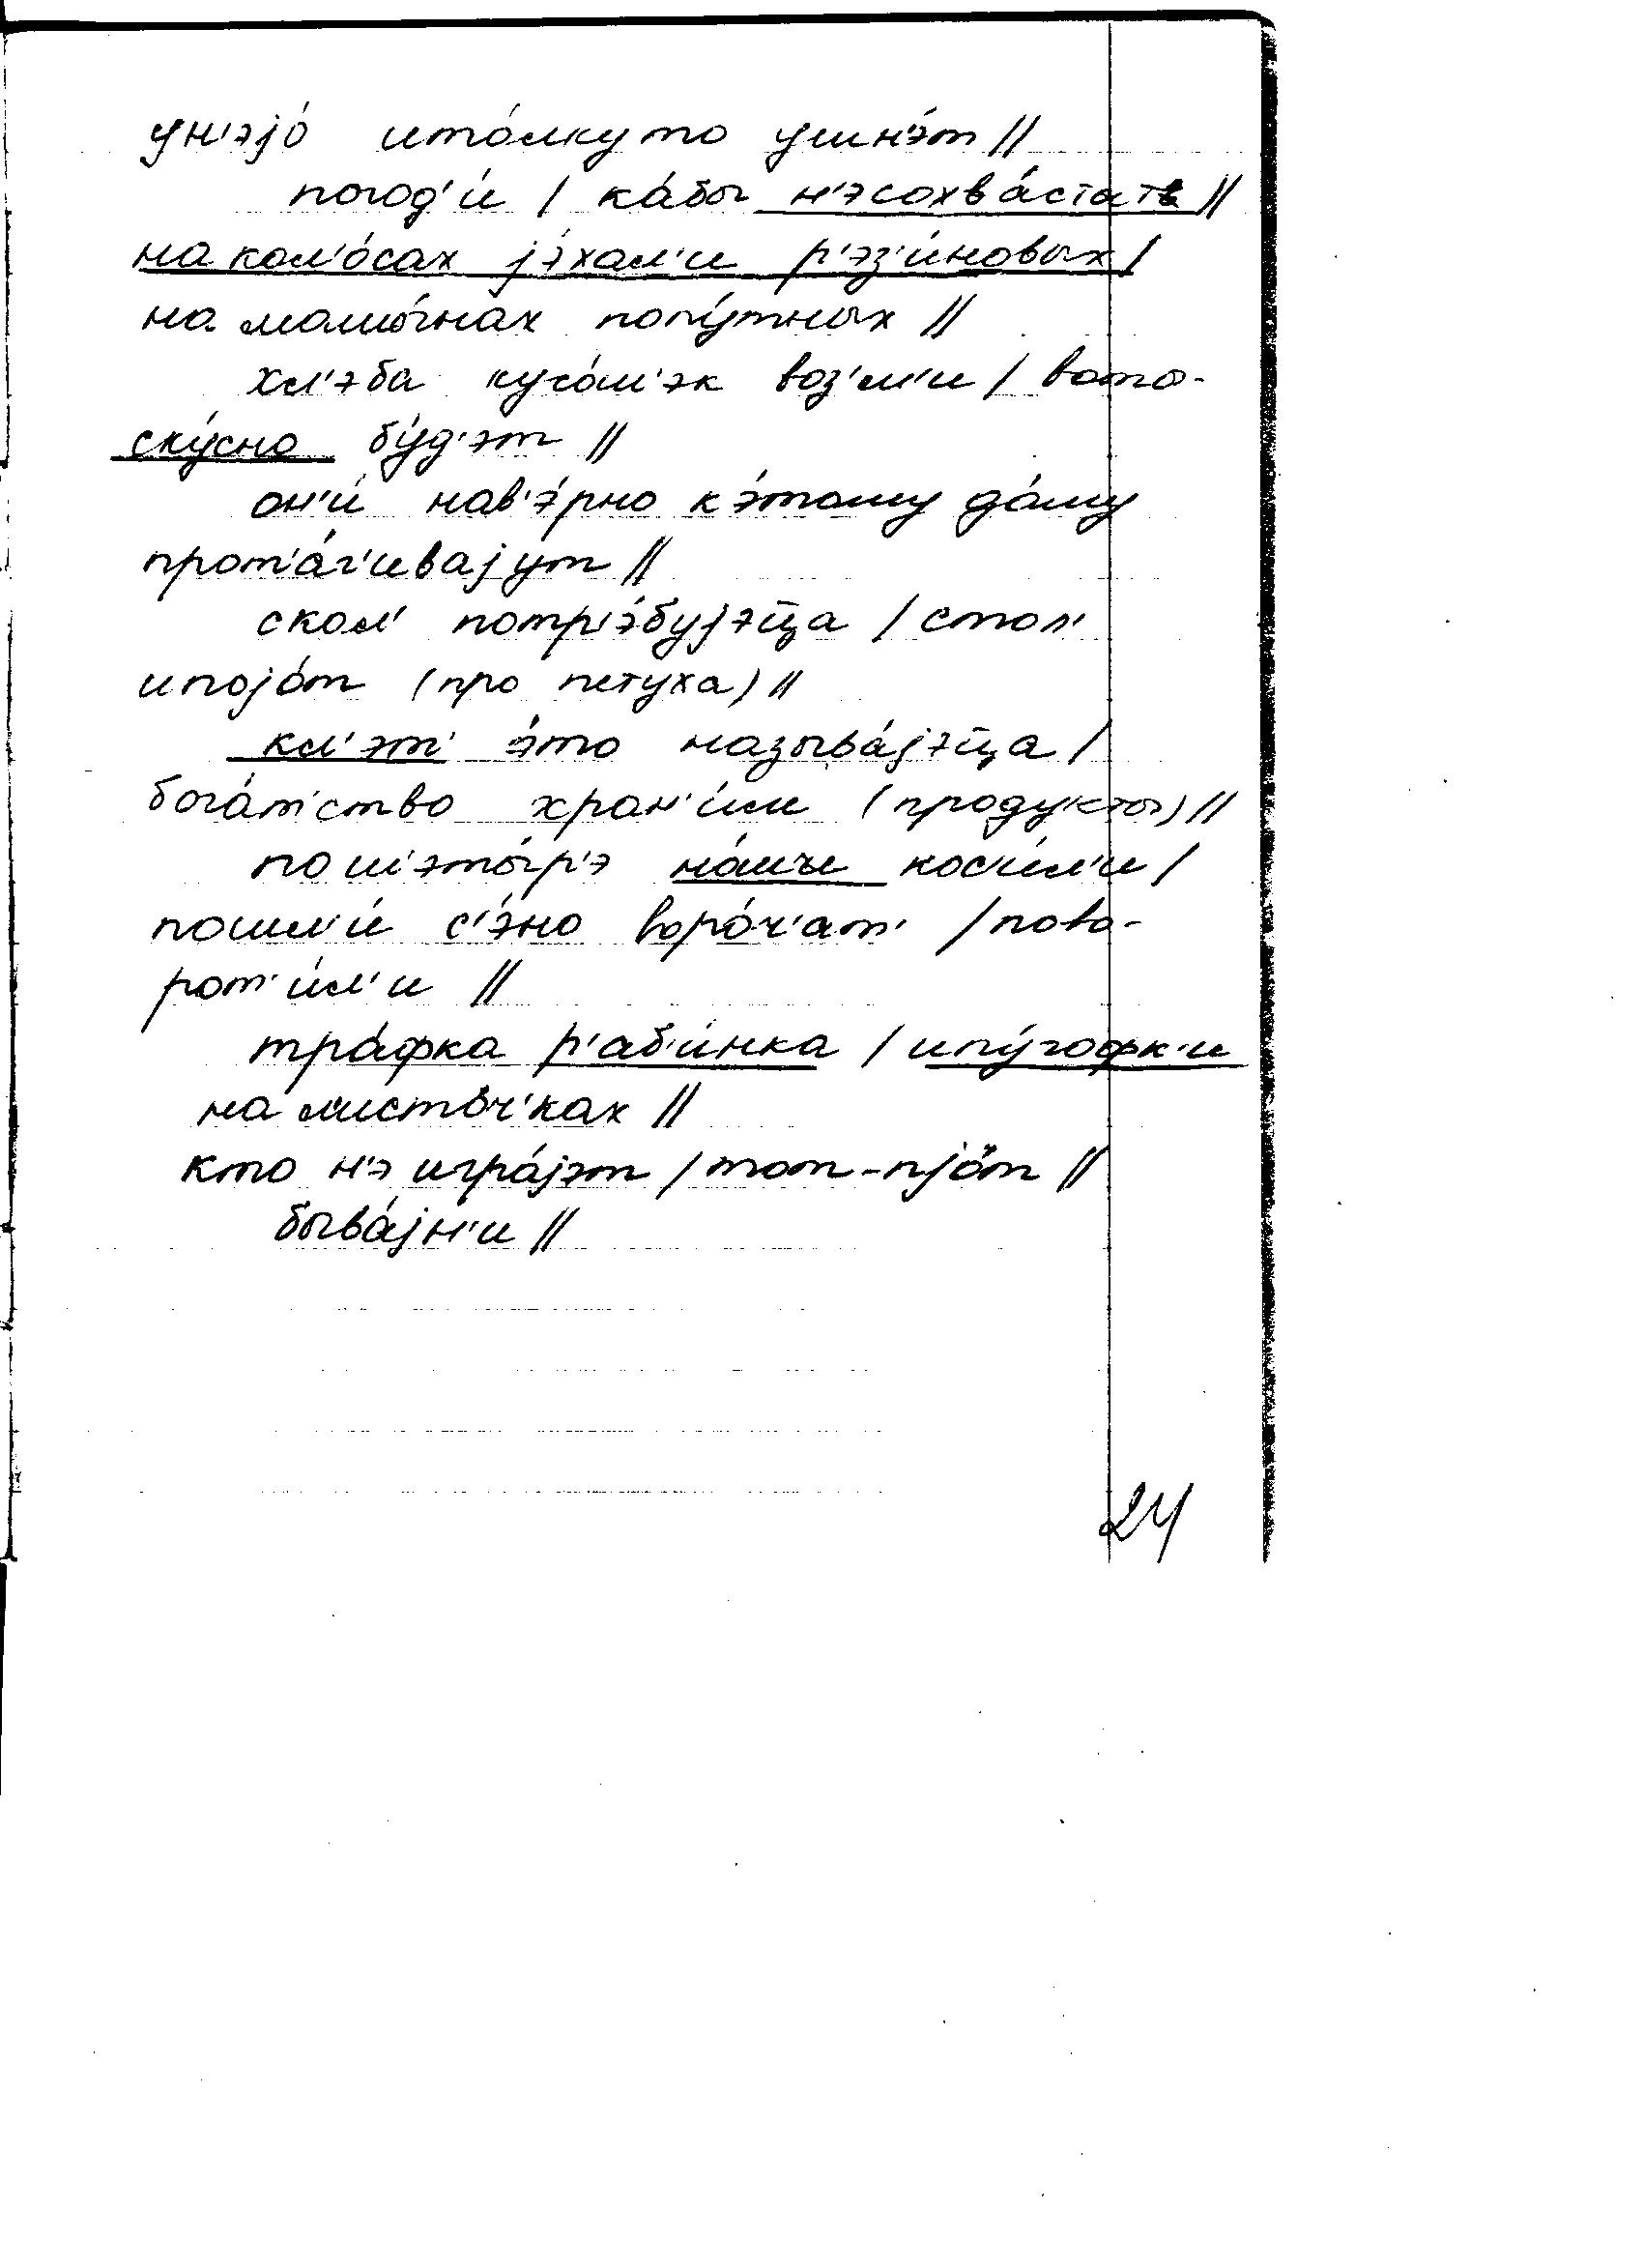 ун'эjо́ ито́лку то ушн'э́т //
погод'и́ / ка́бы н'эсохва́стать //
на кол'о́сах jэ́хал'и р'эз'и́новых /
на машы́нах попу́тных //
хл'эба кусо́ч'эк воз'м'и / вото-
ску́сно бу́д'эт //
он'и́ нав'э́рно к э́тому до́му
прот'а́г'иваjут //
скол' потр'э́буjэц̄а / стол'
ипоjо́т (про петуха) //
кл'эт' э́то называ́jэц̄а /
бога́т'ство хран'и́м (продукты) //
по ш'эты́р'э но́чи кос'и́л'и /
пошл'и́ с'э́но воро́ч'ат' / пово-
рот'и́л'и //
тра́фка р'аб'и́нка / ипу́гофк'и
на л'исто́ч'ках //
кто н'э игра́jэт / тот-пjо́т //
быва́jн'и //
24